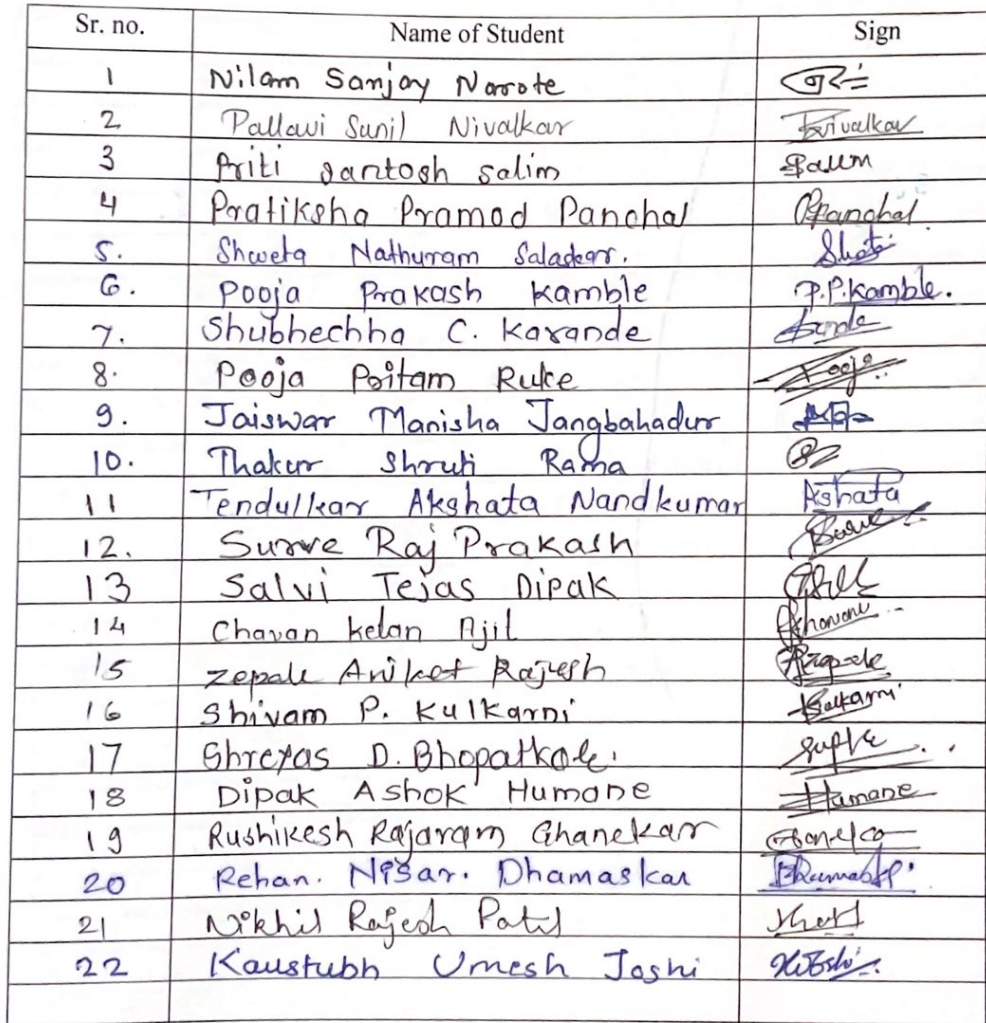 Sr. no. Name of Student Sign
1 Nilam Sanjay Narote
2 Pallavi Sunil Nivalkar Pnivalkar
3 Priti Santosh Salim Salim
4 Pratiksha Pramod Panchal PPanchal
5. Shweta Nathuram Saladkar.
6. Pooja Prakash Kamble P.P.Kamble.
7. Shubhechha C. Karande
8. Pooja Pritam Ruke Pooja
9. Jaiswar Manisha Jangbahadur
10. Thakur Shruti Rama
11 Tendulkar Akshata Nandkumar Ashata
12. Surve Raj Prakash
13 Salvi Tejas Dipak
14 Chavan Ketan Ajit
15 Zepale Aniket Rajesh AZepale
16 Shivam P. Kulkarni Kulkarni
17 Shreyas D. Bhopatkar.
18 Dipak Ashok Humane Humane
19 Rushikesh Rajaram Ghanekar
20 Rehan. Nisar. Dhamaskar
21 Nikhil Rajesh Patil
22 Kaustubh Umesh Joshi